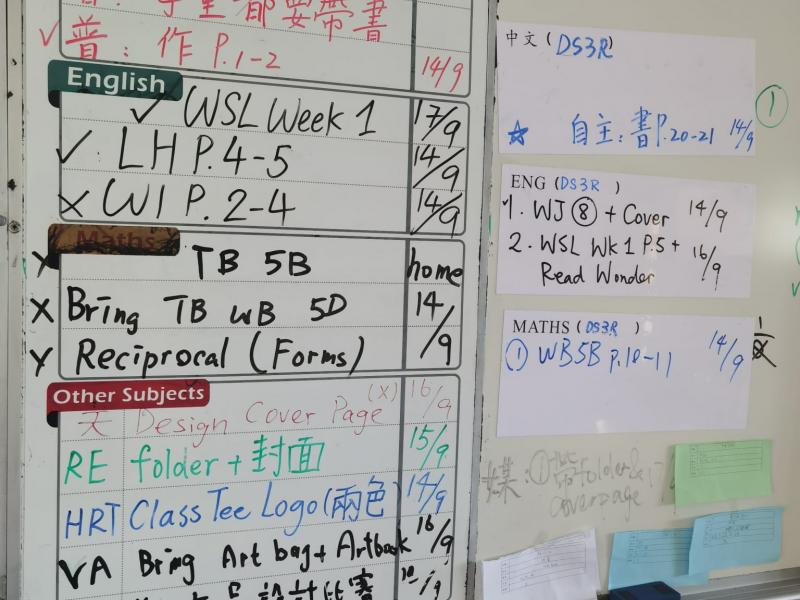 學生都要帶書
✓ 普: 作 P.1-2 14/9
English
✓ WSL Week 1 17/9
✓ LH P.4-5 14/9
× WI P.2-4 14/9
Maths
TB 5B home
× Bring TB WB 5D 14/9
Reciprocal (Forms)
Other Subjects
Design Cover Page (X) 16/9
RE folder + 封面 15/9
HRT Class Tee Logo (兩色) 14/9
VA Bring Art bag + Artbook 16/9
設計比賽
中文 (DS3R)
☆ 自主: 書P.20-21 14/9
①
ENG (DS3R)
1. WJ ⑧ + Cover 14/9
2. WSL Wk 1 P.5 + 16/9
Read Wonder
MATHS (DS3R)
① WB5B P.10-11 14/9
folder &
coverpage